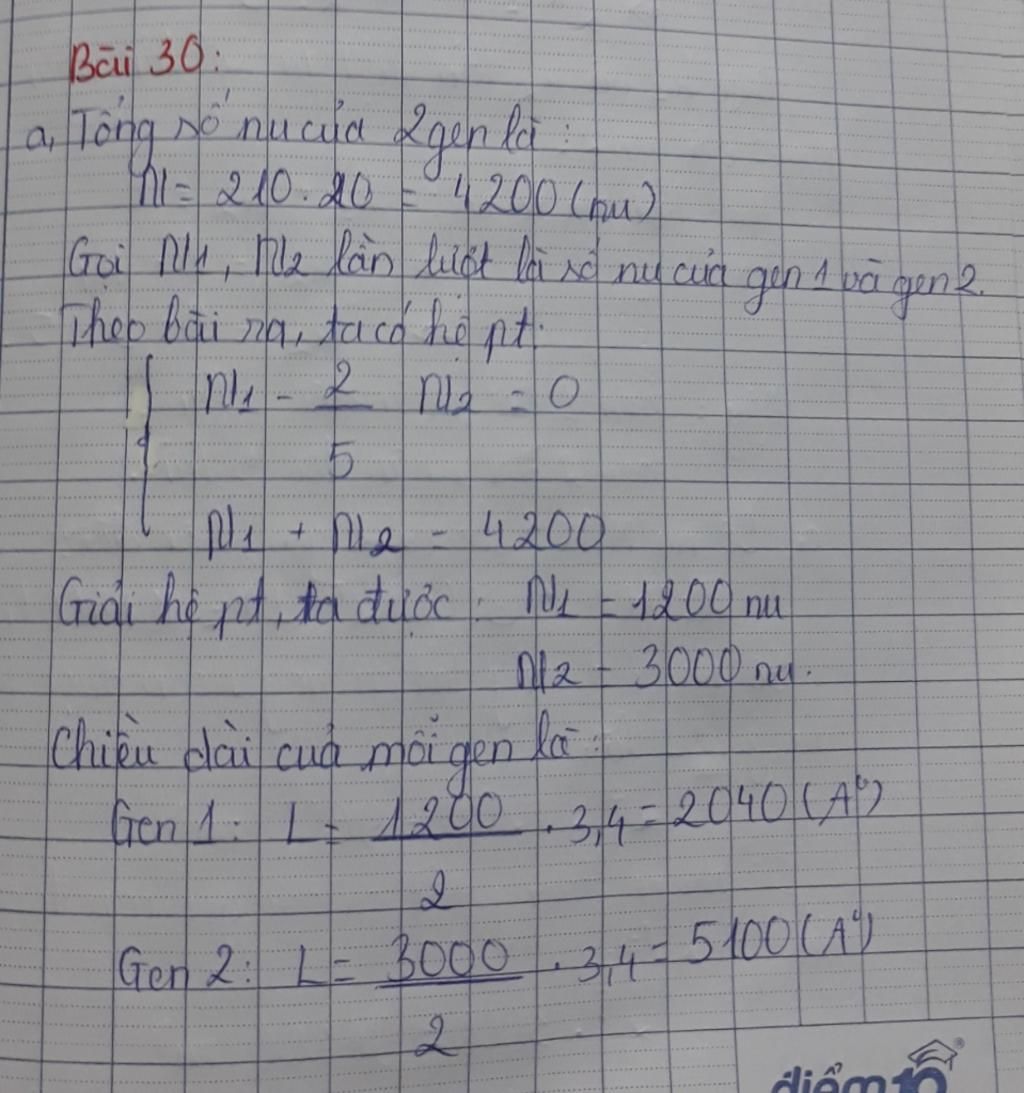 Bài 30:
a, Tổng số nu của 2 gen là:
N = 210 . 20 = 4200 (nu)
Gọi N1, N2 lần lượt là số nu của gen 1 và gen 2.
Theo bài ra, ta có hệ pt:
N1 - 2/5 N2 = 0
N1 + N2 = 4200
Giải hệ pt, ta được: N1 = 1200 nu
N2 = 3000 nu.
Chiều dài của mỗi gen là:
Gen 1: L = 1200/2 . 3,4 = 2040 (A⁰)
Gen 2: L = 3000/2 . 3,4 = 5100 (A⁰)
điểm 10